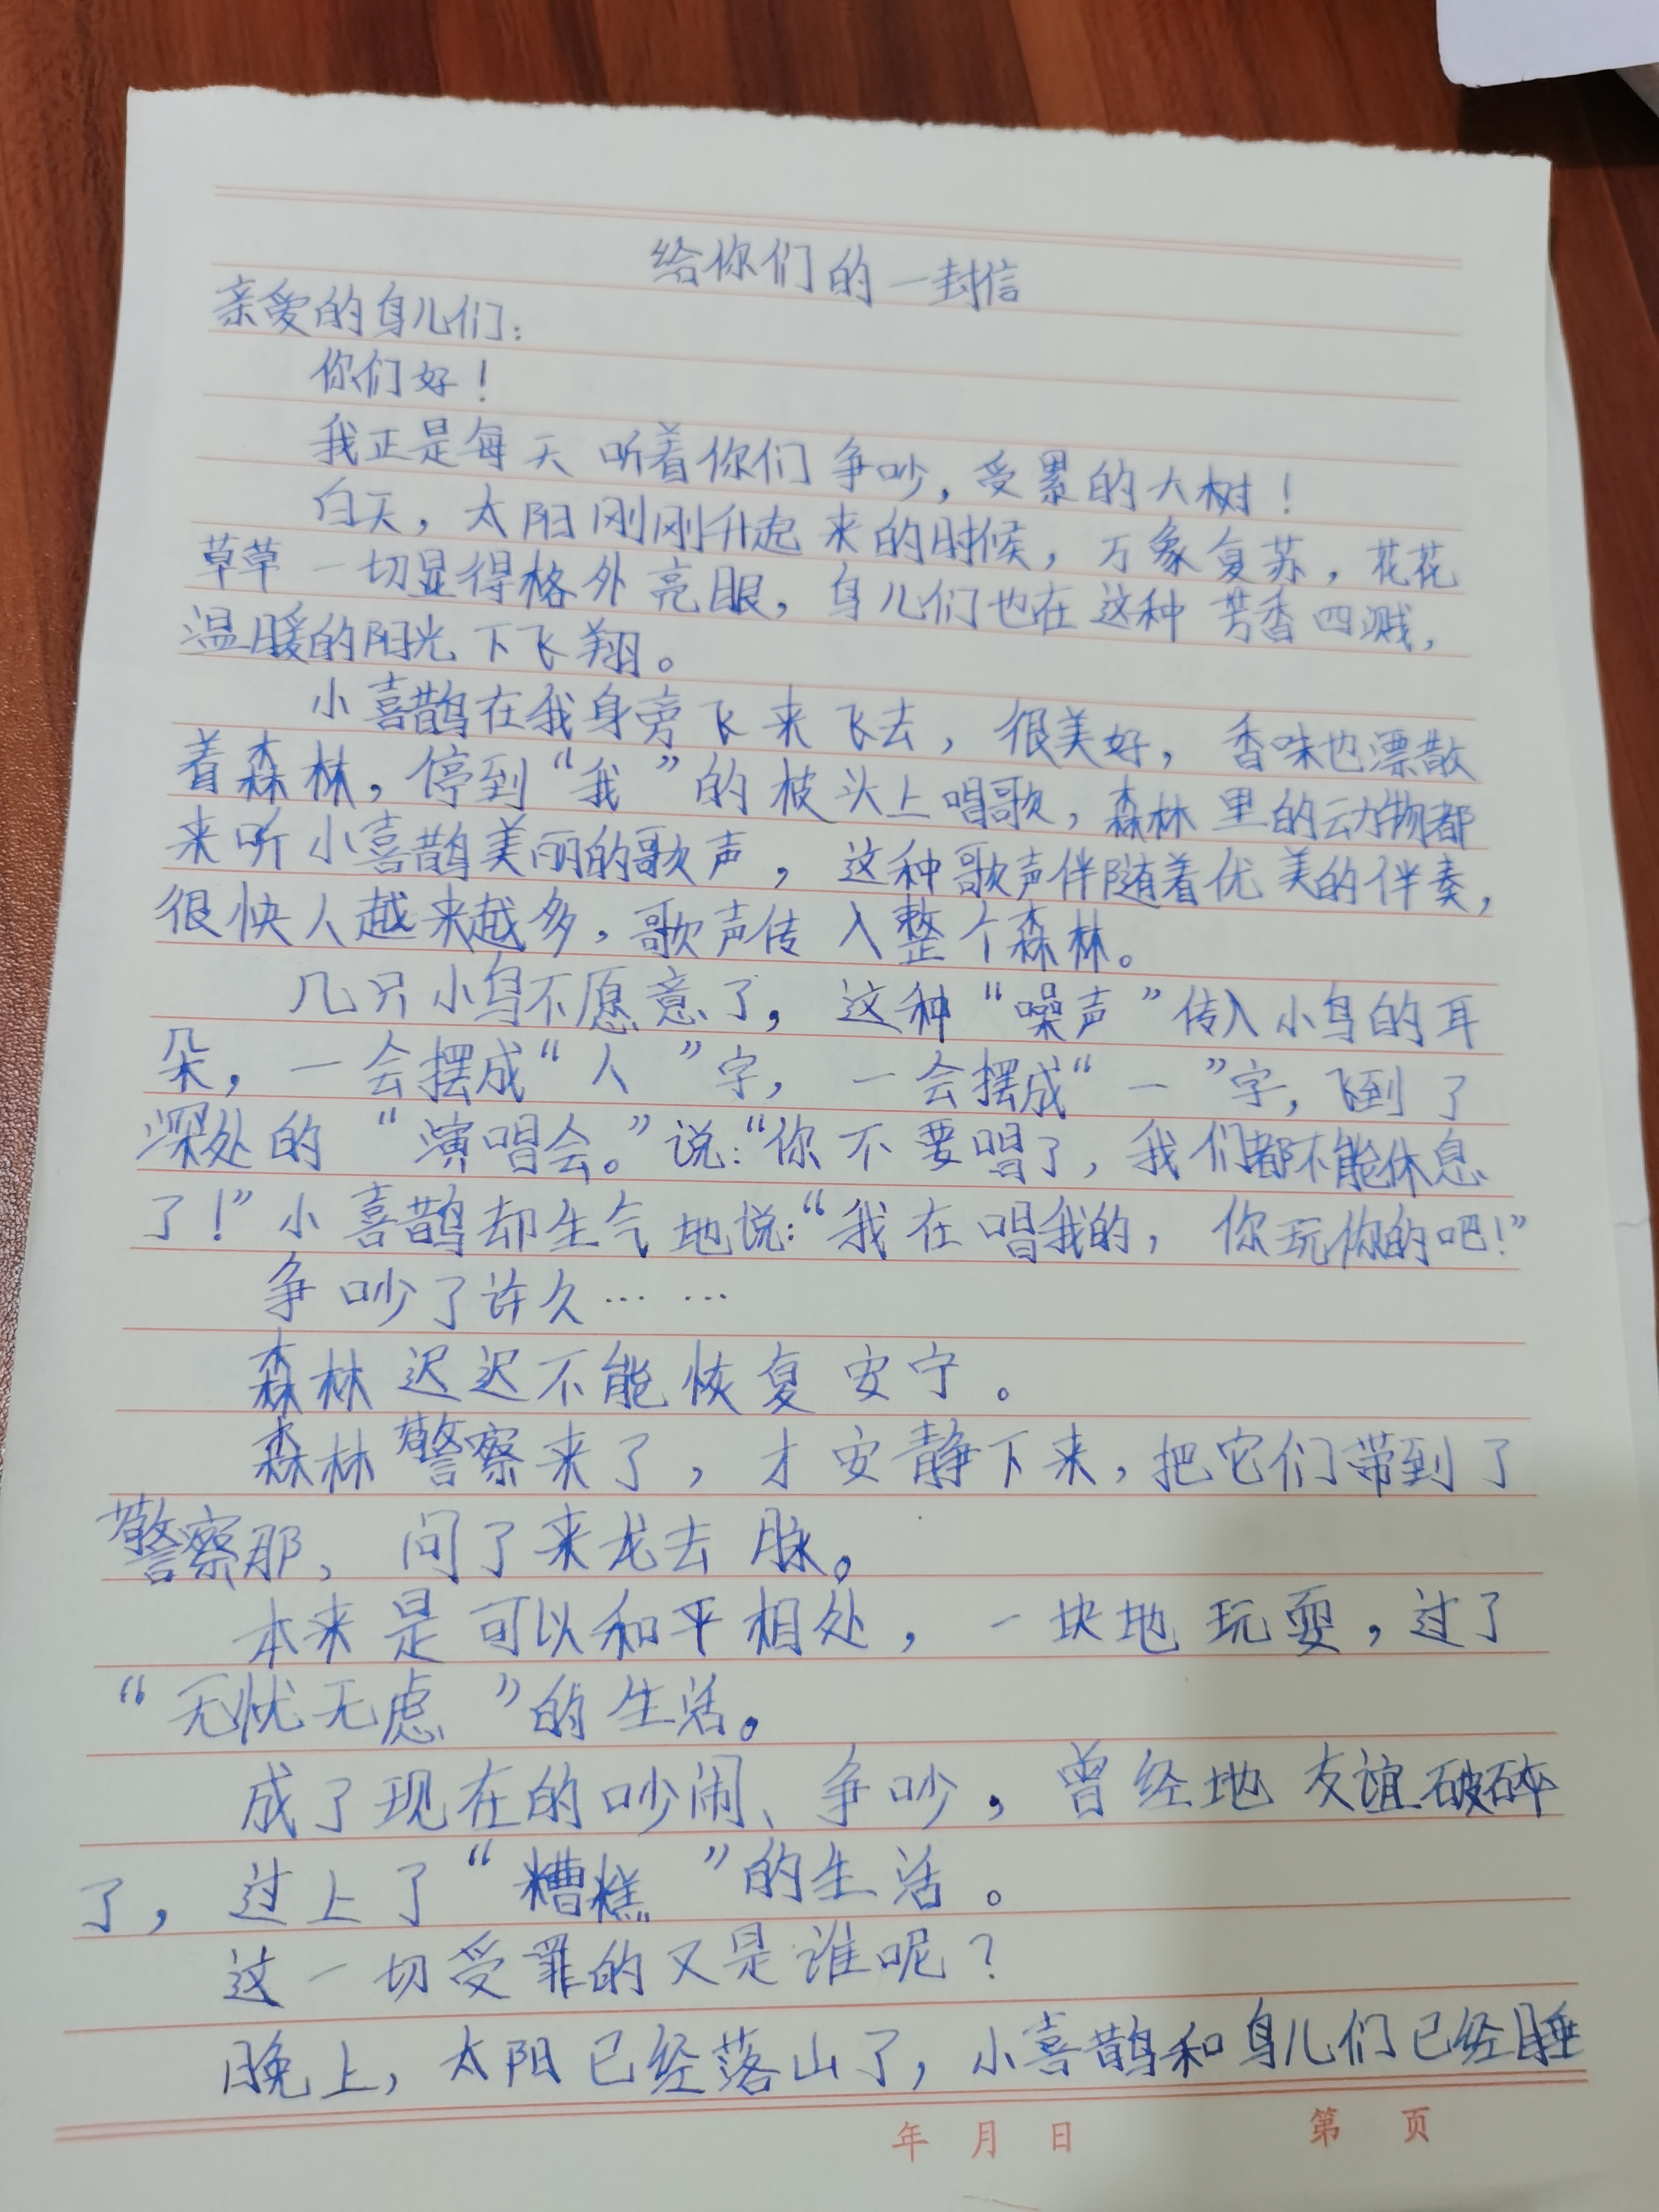 给你们的一封信
亲爱的鸟儿们：
你们好！
我正是每天听着你们争吵，受累的大树！
白天，太阳刚刚升起来的时候，万象复苏，花花
草草一切显得格外亮眼，鸟儿们也在这种芳香四溅，
温暖的阳光下飞翔。
小喜鹊在我身旁飞来飞去，很美好，香味也漂散
着森林，停到“我”的枝头上唱歌，森林里的动物都
来听小喜鹊美丽的歌声，这种歌声伴随着优美的伴奏，
很快人越来越多，歌声传入整个森林。
几只小鸟不愿意了，这种“噪声”传入小鸟的耳
朵，一会摆成“人”字，一会摆成“一”字，飞到了
深处的“演唱会。”说：“你不要唱了，我们都不能休息
了！”小喜鹊却生气地说：“我在唱我的，你玩你的吧！”
争吵了许久……
森林迟迟不能恢复安宁。
森林警察来了，才安静下来，把它们带到了
警察那、问了来龙去脉。
本来是可以和平相处，一块地玩耍，过了
“无忧无虑”的生活。
成了现在的吵闹、争吵，曾经地友谊破碎
了，过上了“糟糕”的生活。
这一切受罪的又是谁呢？
晚上，太阳已经落山了，小喜鹊和鸟儿们已经睡
年 月 日 第 页